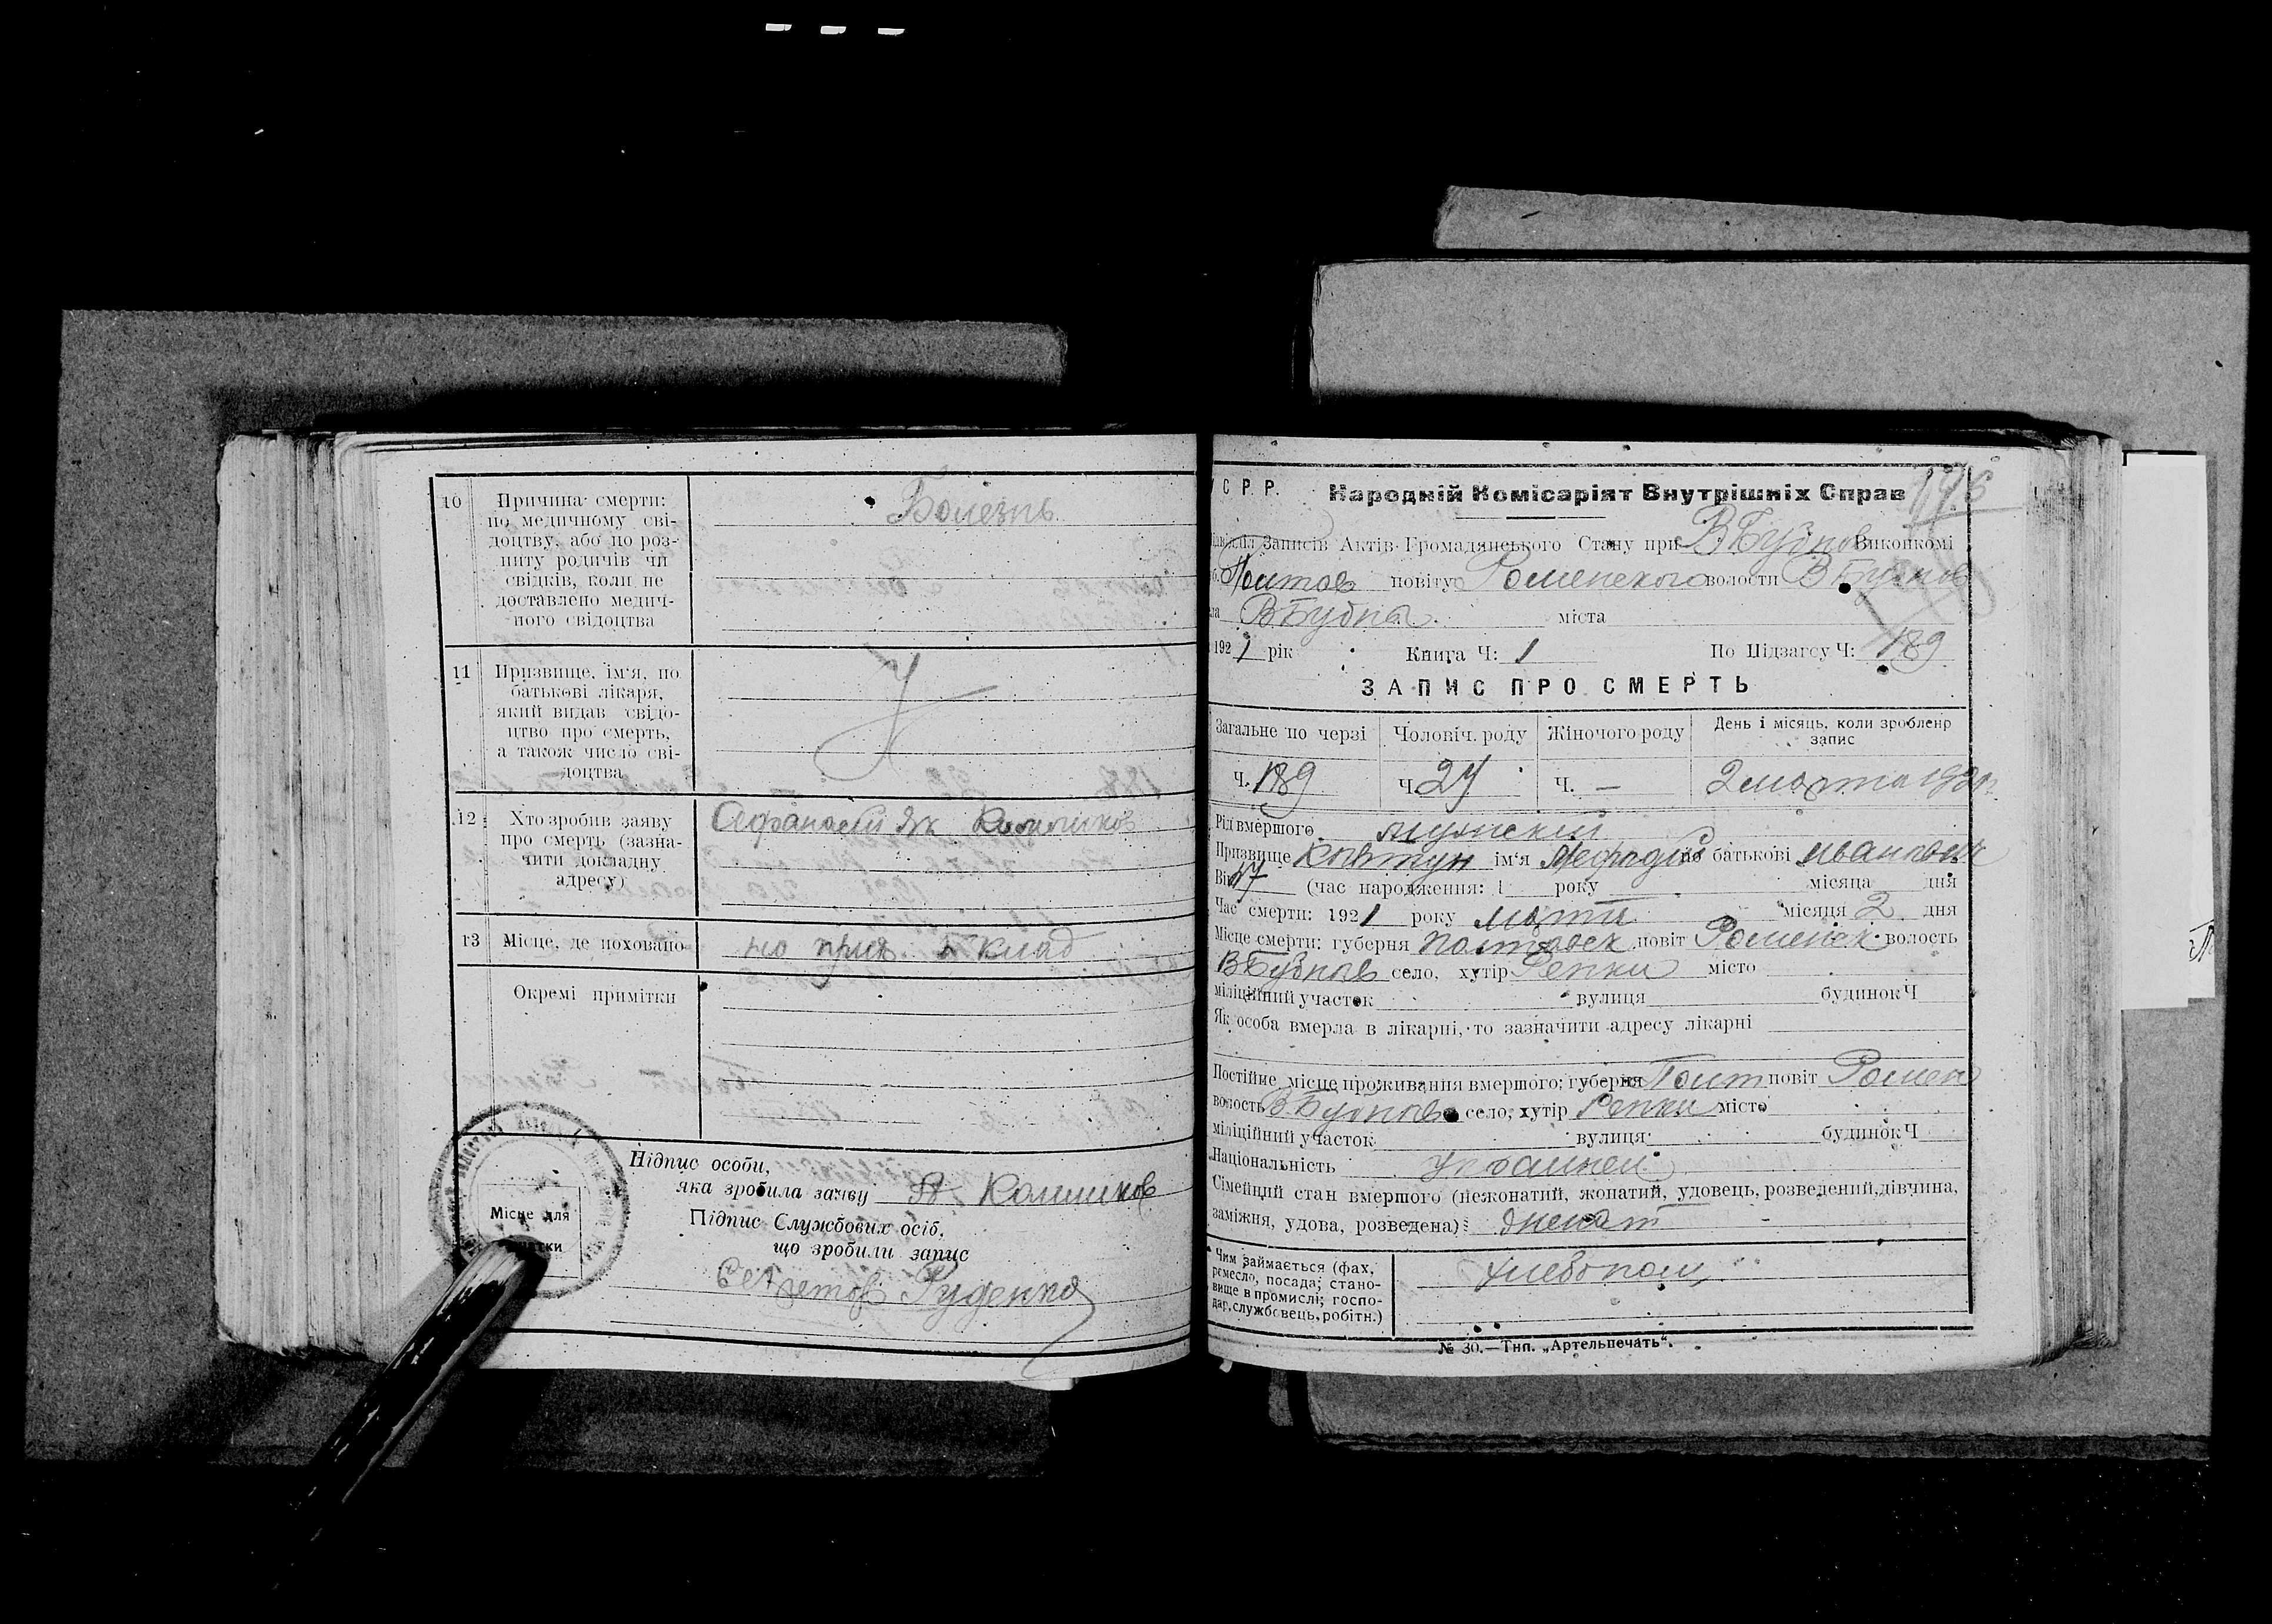 10 Причина смерти:
по медичному сві-
доцтву, або по роз-
питу родичів чи
свідків, коли не
доставлено медич-
ного свідоцтва
Болезнь
11 Призвище, ім'я, по
батькові лікаря,
який видав свідо-
цтво про смерть,
а також число сві-
доцтва
12 Хто зробив заяву
про смерть (зазна-
чити докладну
адресу)
Афанасий Як Колишков
13 Місце, де поховано
на прих клад
Окремі примітки
Підпис особи,
яка зробила заяву А Колишков
Підпис Службових осіб,
що зробили запис
Руденко
Місце для
У С Р. Р. Народній Комісаріят Внутрішніх Справ
176
Записів Актів Громадянського Стану при В Бубнов Виконкомі
Полтав повіту Роменского волости В Бубнов
В Бубны міста
1921 рік Книга Ч: 1 По Підзагсу Ч: 189
ЗАПИС ПРО СМЕРТЬ
Загальне по черзі Чоловіч. роду Жіночого роду День і місяць, коли зроблено
запис
Ч. 189 Ч. 27 Ч. — 2 марта 1921 г.
Рід вмершого мужский
Призвище Ковтун ім'я Мефодий по батькові Иванович
Вік 47 (час народження: 1 року місяца дня
Час смерти: 1921 року марта місяця 2 дня
Місце смерти: губерня Полтавск повіт Роменск волость
В Бубнов село, хутір Репки місто
міліційний участок вулиця будинок Ч
Як особа вмерла в лікарні, то зазначити адресу лікарні
Постійне місце проживання вмершого: губерня Полт повіт Ромен
волость В Бубнов село, хутір Репки місто
міліційний участок вулиця будинок Ч
Національність
Сімейний стан вмершого (нежонатий, жонатий, удовець, розведений, дівчина,
заміжня, удова, розведена):
Чим займається (фах,
ремесло, посада; стано-
вище в промислі; госпо-
дар, службовець, робітн.)
хлебопаш
№ 30.—Тип. „Артельпечать“.